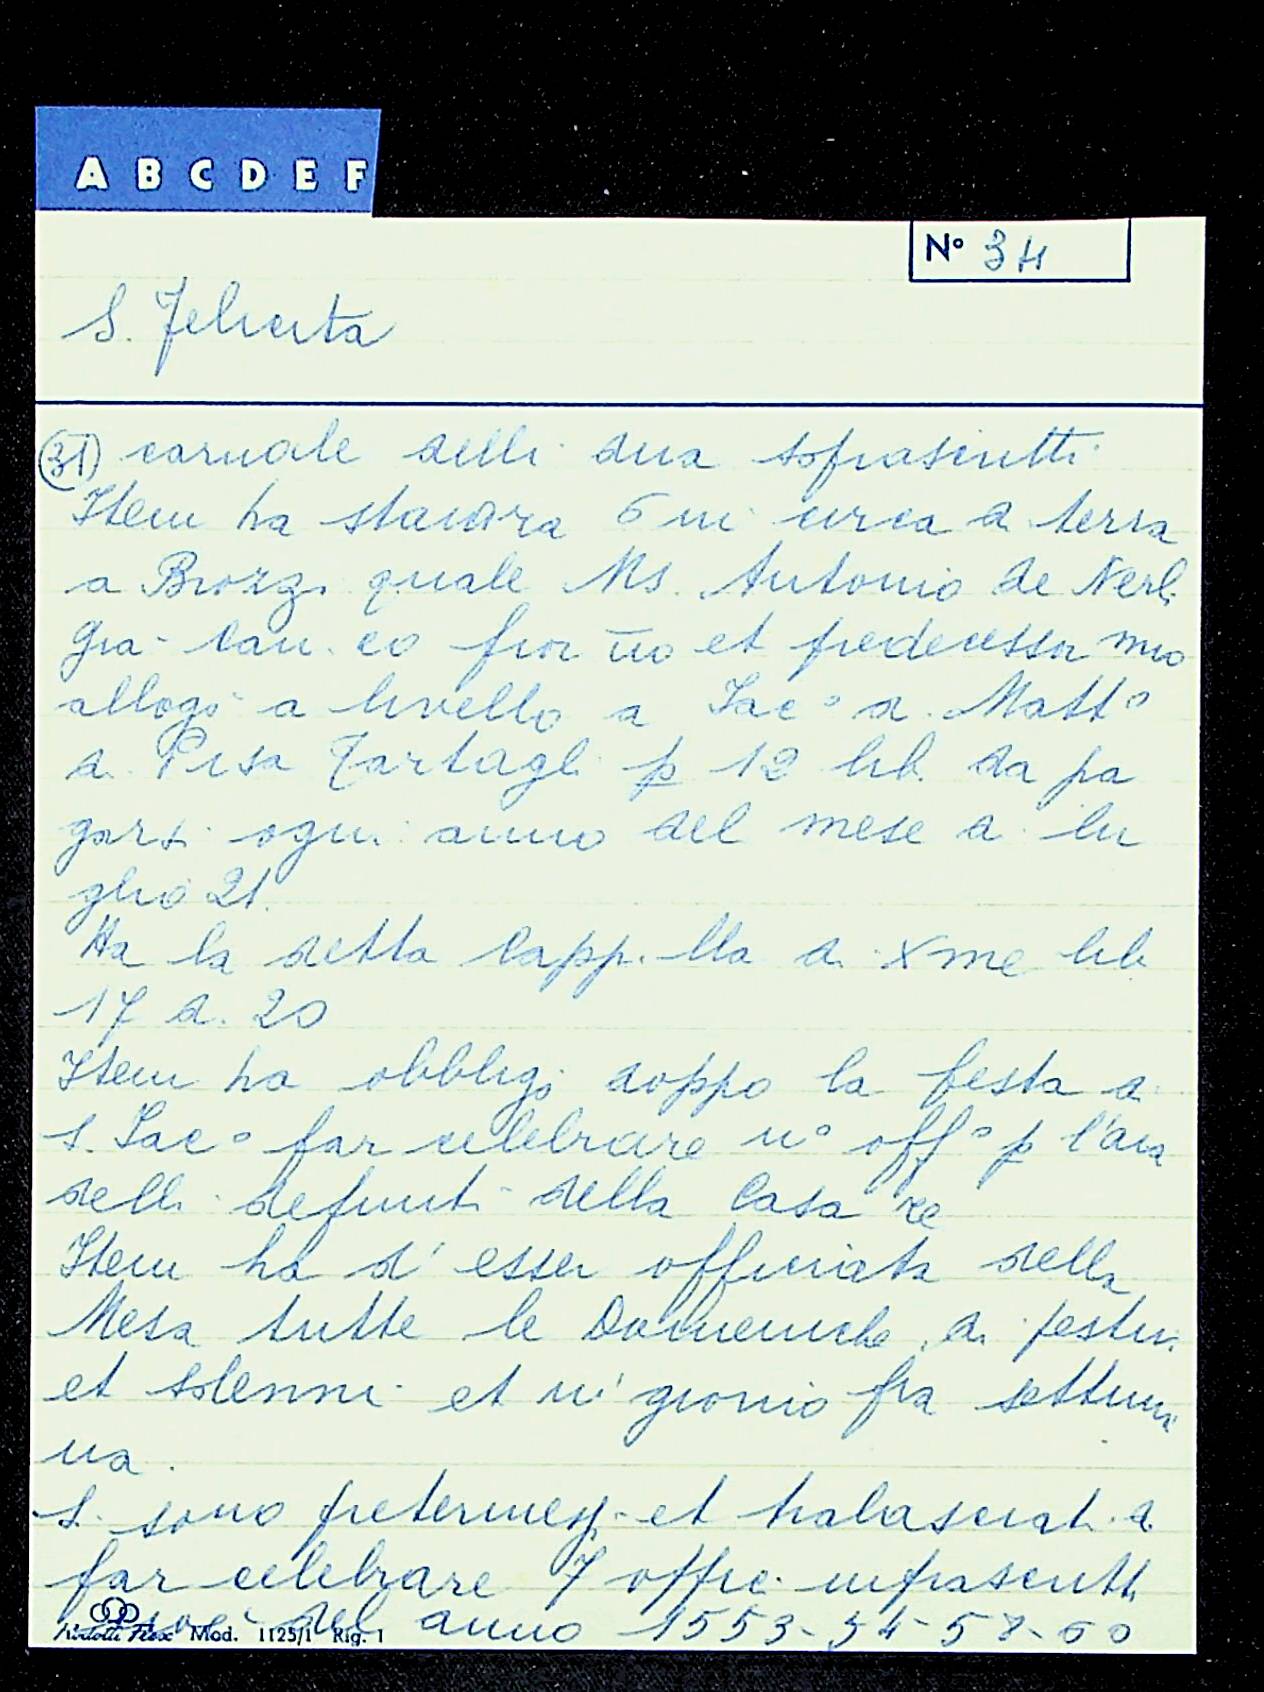 A B C D E F
N° 34
S. Felicita
31) carnale delli dua sofrascritti
Item ha staiora 6 in circa di terra
a Brozzi quale Ms. Antonio de Nerli
Gia Can. co fior no et predecessor mio
allogò a livello a Jac° di Matt°
di Pisa Tartagli p 12 lib. da pa
garsi ogni anno del mese di lu
glio 21.
Ha la detta Capp. lla di Xme lib
17 d. 20
Item ha obbligo doppo la festa di
S. Jac° far celebrare un° off° p l'aia
delli defunti della Casa
Item ha d'esser officiata della
Mesa tutte le Domeniche di festivi
et solenni et un giorno fra settima
na.
Si sono pretermessi et tralasciati di
far celebrare 7 offici infrascritti
cioè del anno 1553-54-58-60
Mod. 1125/1 Rig. 1